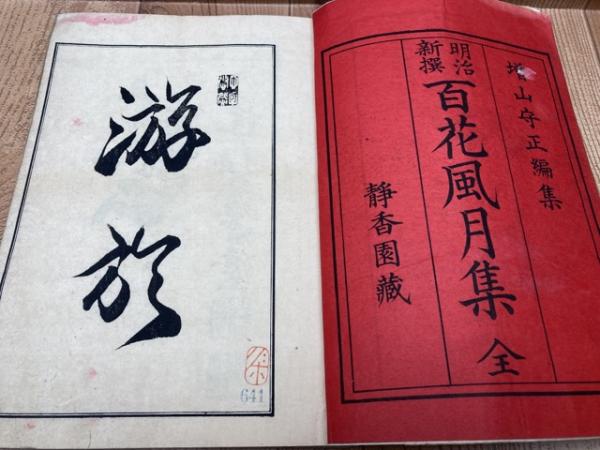 増山守正編集
明治
新撰
百花風月集 全
静香園藏
游於
641